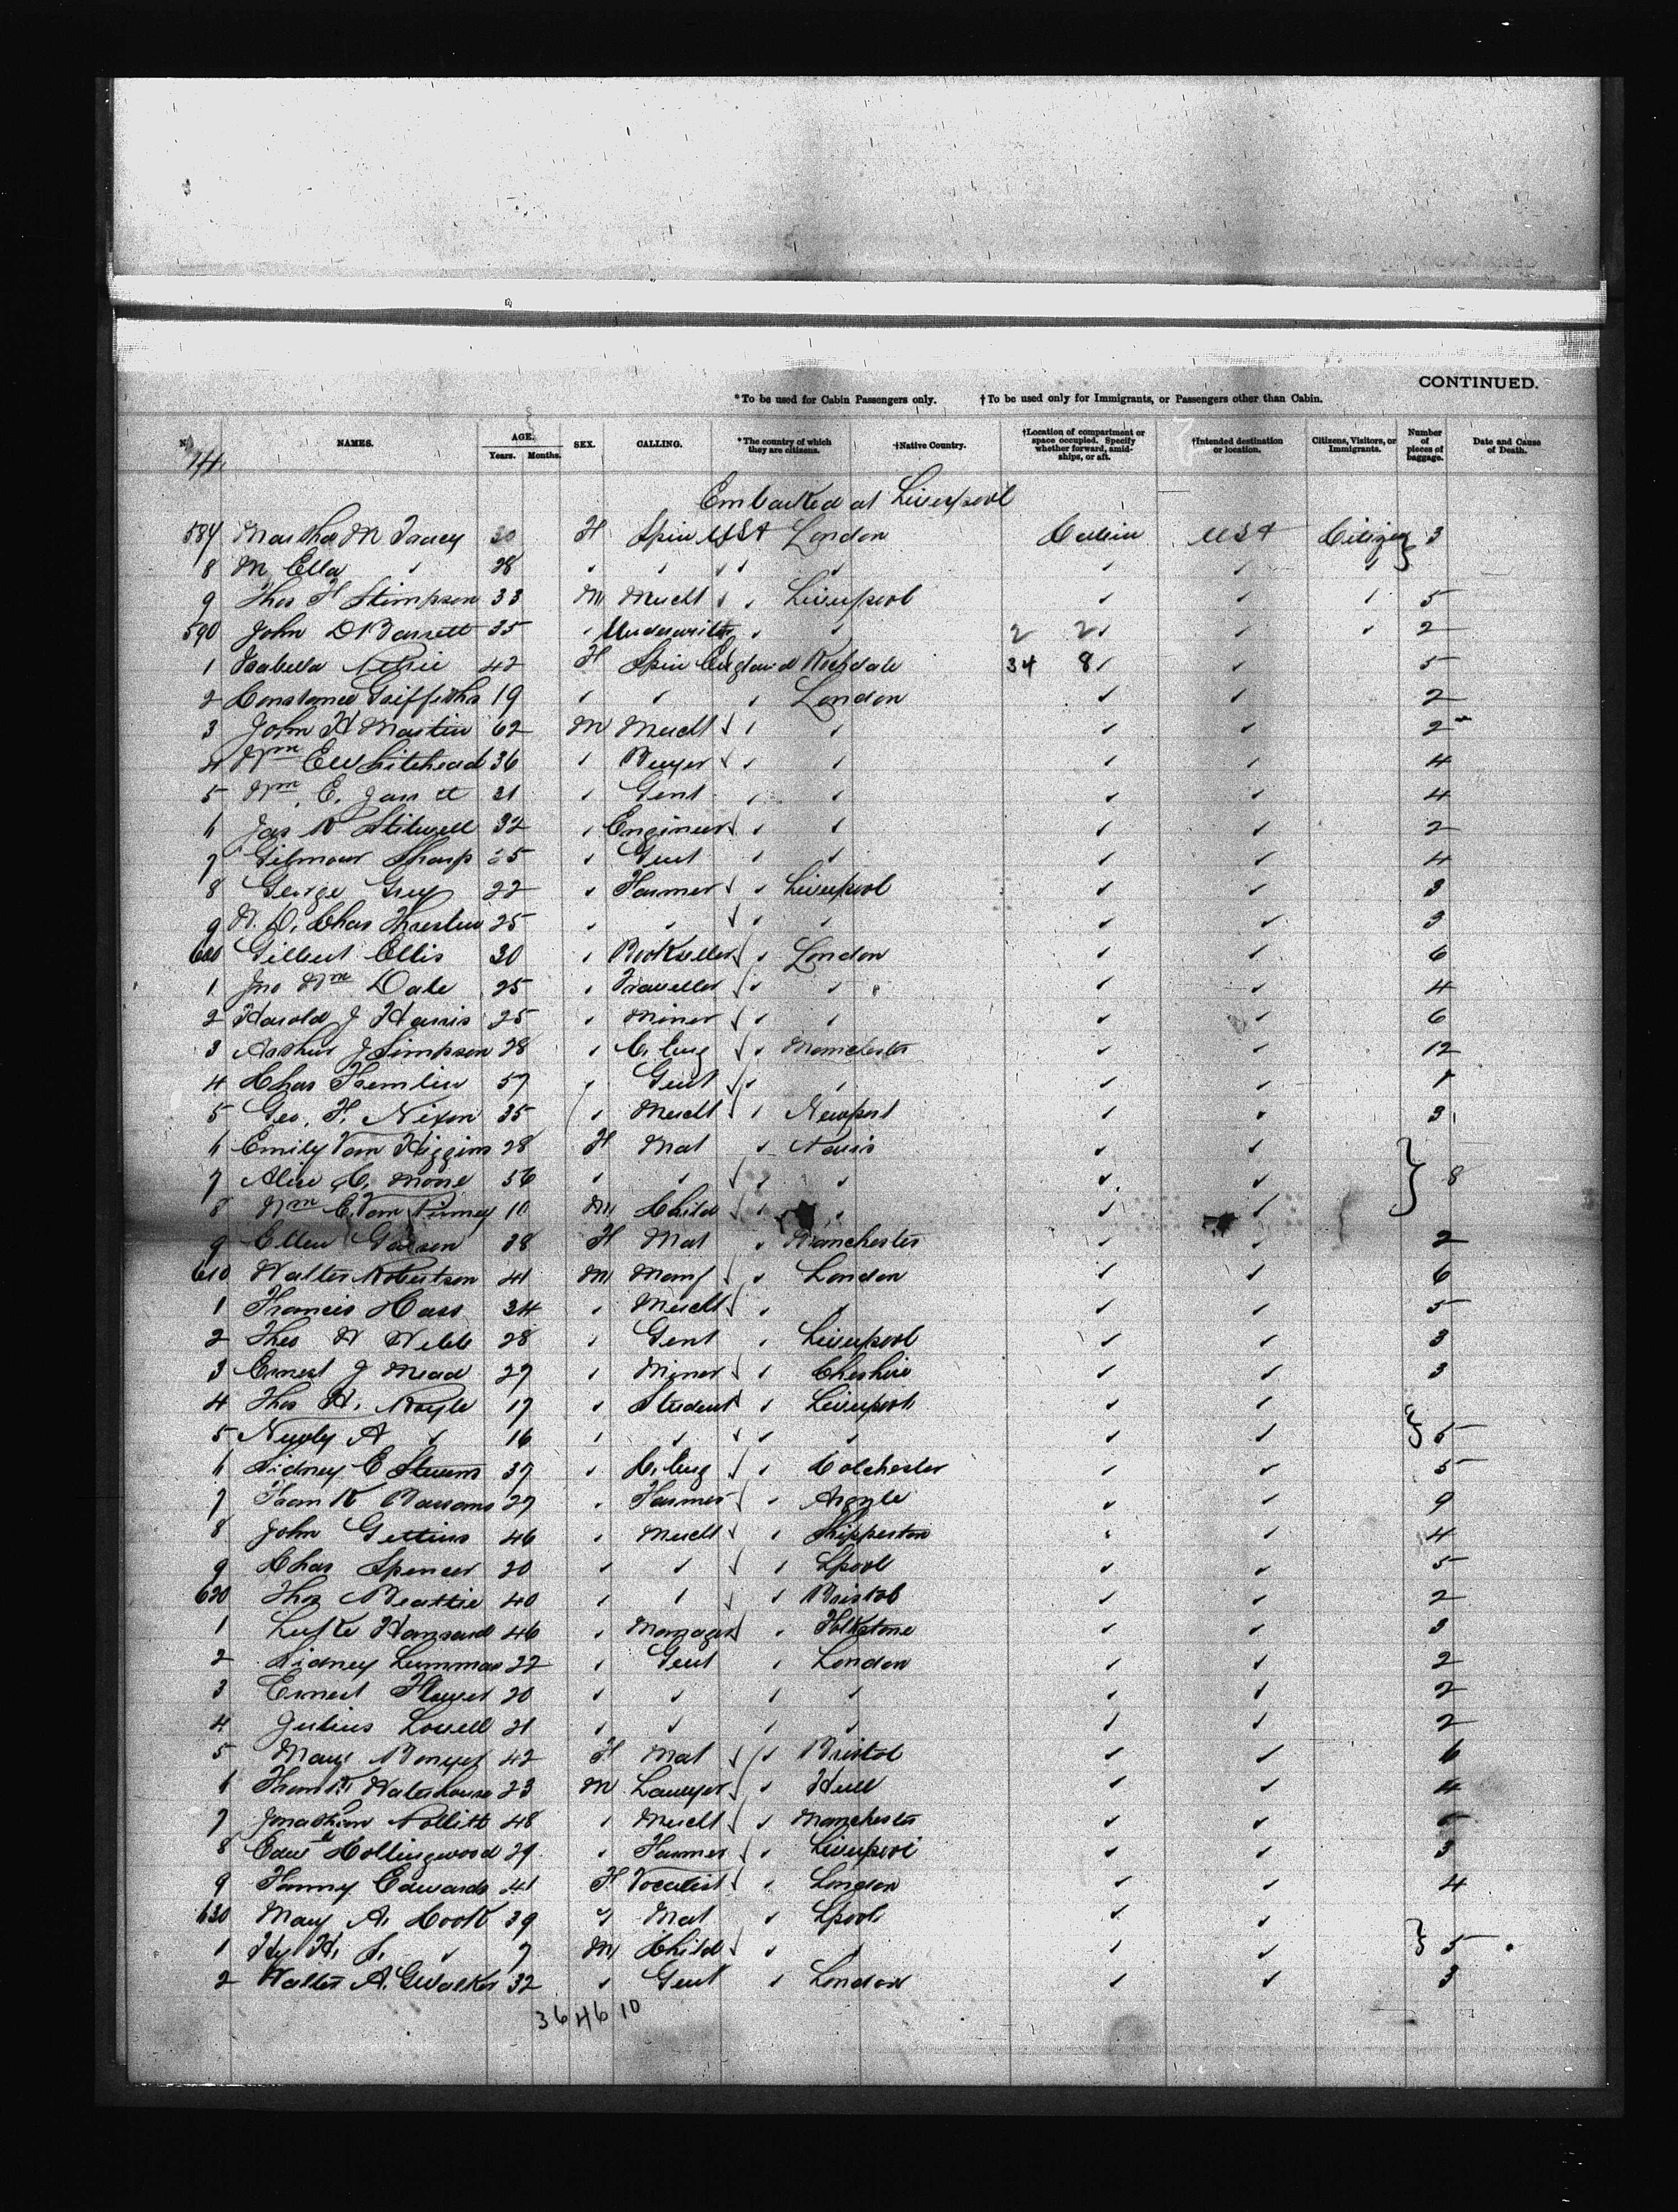 CONTINUED.
*To be used for Cabin Passengers only. †To be used only for Immigrants, or Passengers other than Cabin.
No NAMES. AGE. Years. Months. SEX. CALLING. *The country of which they are citizens. †Native Country. †Location of compartment or space occupied. Specify whether forward, amidships, or aft. †Intended destination or location. Citizens, Visitors, or Immigrants. Number of pieces of baggage. Date and Cause of Death.
14
Embarked at Liverpool
584 Martha M Tracey 30 F Spin USA London Cabin USA Citizen } 3
8 M Ella ✓ 28 ✓ ✓ ✓ ✓ ✓ ✓ ✓ ✓
9 Thos H Stimpson 33 M Mercht ✓ ✓ Liverpool ✓ ✓ ✓ 5
590 John D Barrett 35 ✓ Underwriter ✓ ✓ 2 2 ✓ ✓ ✓ 2
1 Isabella 42 F Spin England Rochdale 34 8 ✓ ✓ 5
2 Constance Griffiths 19 ✓ ✓ ✓ London ✓ ✓ 2
3 John H Martin 62 M Mercht ✓ ✓ ✓ ✓ ✓ 2
4 Wm E Whitehead 36 ✓ Buyer ✓ ✓ ✓ ✓ ✓ 4
5 Wm E. Jarrett 31 ✓ Gent ✓ ✓ ✓ ✓ 4
6 Jas R Stilwell 32 ✓ Engineer ✓ ✓ ✓ ✓ ✓ 2
7 Gilmour Sharp 25 ✓ Gent ✓ ✓ ✓ ✓ 4
8 George Grey 22 ✓ Farmer ✓ ✓ Liverpool ✓ ✓ 3
9 Chas 25 ✓ ✓ ✓ ✓ ✓ ✓ ✓ 3
600 Gilbert Ellis 30 ✓ Bookseller ✓ ✓ London ✓ ✓ 6
1 Jno Wm Dale 25 ✓ Traveller ✓ ✓ ✓ ✓ ✓ 4
2 Harold J Harris 25 ✓ Miner ✓ ✓ ✓ ✓ ✓ 6
3 Arthur J Simpson 28 ✓ C. Eng ✓ ✓ Manchester ✓ ✓ 12
4 Chas Fremlin 57 ✓ Gent ✓ ✓ ✓ ✓ ✓ 1
5 Geo. F. Nixon 35 ✓ Mercht ✓ ✓ Newport ✓ ✓ 3
6 Emily Van Higgins 28 F Mat ✓ Paris ✓ ✓
7 Alice C. Moore 56 ✓ ✓ ✓ ✓ ✓ ✓ ✓ } 8
8 Wm C. Van 10 M Child ✓ ✓ ✓ ✓ ✓
9 Ellen 38 F Mat ✓ Manchester ✓ ✓ 2
610 Walter Robertson 41 M Manf ✓ ✓ London ✓ ✓ 6
1 Francis Hass 34 ✓ Mercht ✓ ✓ ✓ ✓ ✓ 5
2 Theo W Webb 28 ✓ Gent ✓ Liverpool ✓ ✓ 3
3 Ernest J Mead 27 ✓ Miner ✓ ✓ Cheshire ✓ ✓ 3
4 Thos H. Royle 17 ✓ Student ✓ Liverpool ✓ ✓
5 A ✓ 16 ✓ ✓ ✓ ✓ ✓ ✓ ✓ } 5
6 Sidney E Stevens 37 ✓ C. Eng ✓ ✓ Colchester ✓ ✓ 5
7 Frank Parsons 27 ✓ Farmer ✓ ✓ Argyle ✓ ✓ 9
8 John Gettins 46 ✓ Mercht ✓ ✓ Shipperton ✓ ✓ 4
9 Chas Spencer 20 ✓ ✓ ✓ ✓ Lpool ✓ ✓ 5
620 Thos Beattie 40 ✓ ✓ ✓ ✓ Bristol ✓ ✓ 2
1 Luke Hansard 46 ✓ Manager ✓ ✓ Folkstone ✓ ✓ 3
2 Sidney Lummas 22 ✓ Gent ✓ London ✓ ✓ 2
3 Ernest Flower 20 ✓ ✓ ✓ ✓ ✓ ✓ 2
4 Julius Lovell 21 ✓ ✓ ✓ ✓ ✓ ✓ 2
5 Mary 42 F Mat ✓ ✓ Bristol ✓ ✓ 6
6 Frank Waterhouse 23 M Lawyer ✓ ✓ Hull ✓ ✓ 4
7 Jonathan Pollitt 48 ✓ Mercht ✓ ✓ Manchester ✓ ✓ 5
8 Edwd Hollingwood 29 ✓ Farmer ✓ ✓ Liverpool ✓ ✓ 3
9 Fanny Edwards 41 F Vocalist ✓ ✓ London ✓ ✓ 4
630 Mary A. Cook 39 ✓ Mat ✓ Lpool ✓ ✓
1 Hy H. S. ✓ 7 M Child ✓ ✓ ✓ ✓ ✓ } 5
2 Walter A. G Walker 32 ✓ Gent ✓ London ✓ ✓ 3
36 46 10